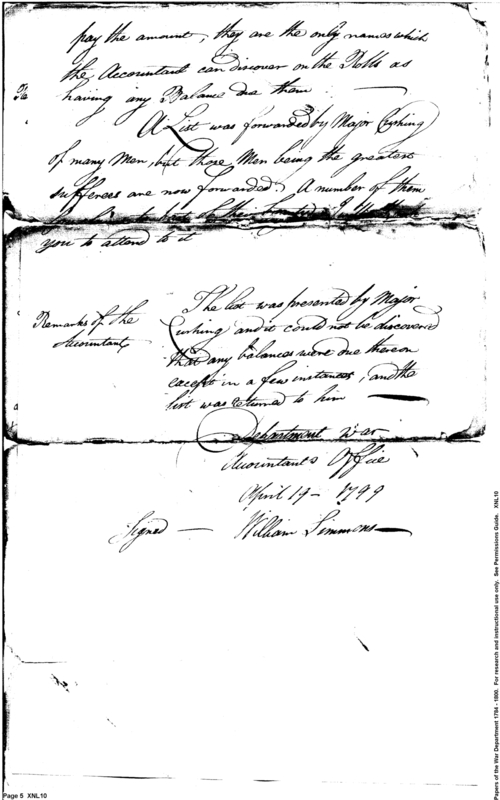 pay the amount, they are the only names which
the Accountant can discover on the Rolls as
having any Balance due them
A List was forwarded by Major Cushing
of many Men, but those Men being the greatest
sufferers are now forwarded. A number of them
you to attend to it
Remarks of the
Accountant
The list was presented by Major
Cushing and it could not be discovered
that any balances were due thereon
except in a few instances, and the
list was returned to him
Department War
Accountants Office
April 19 - 1799
Signed - William Simmons
Page 5 XNL10
Papers of the War Department 1784 - 1800. For research and instructional use only. See Permissions Guide. XNL10